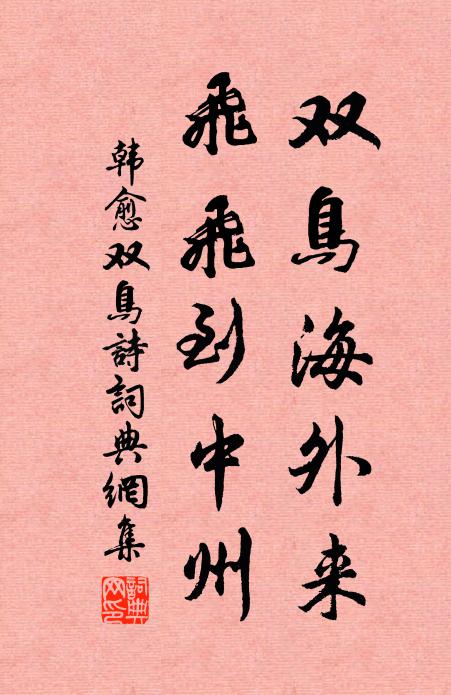 双鳥海外来
飛飛到中州
韩愈双鳥詩詞典網集
詞典網印